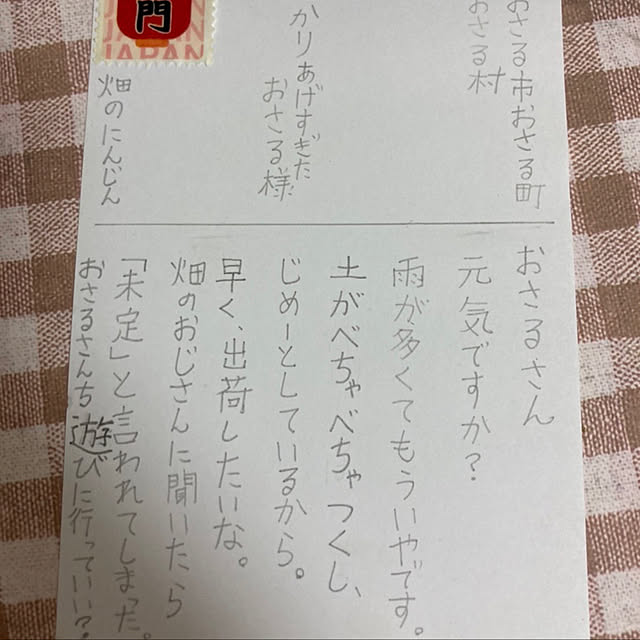 門
JAPAN
JAPAN
おさる市おさる町
おさる村
かりあげすぎた
おさる様
畑のにんじん
おさるさん
元気ですか?
雨が多くてもういやです。
土がべちゃべちゃつくし、
じめーとしているから。
早く、出荷したいな。
畑のおじさんに聞いたら
「未定」と言われてしまった。
おさるさんち遊びに行っていい?